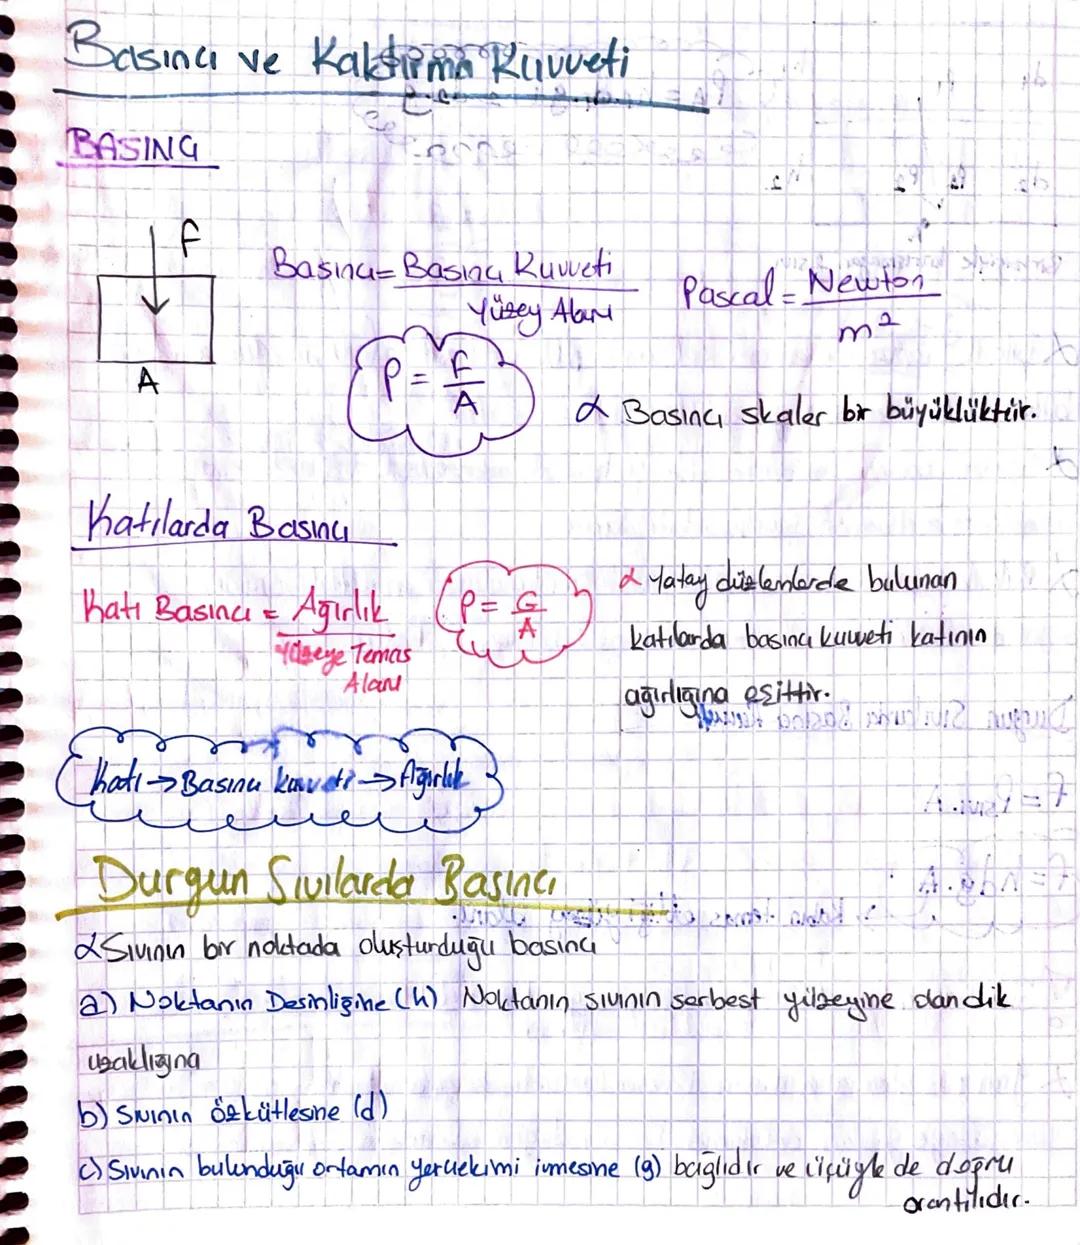 Basınç ve Kaldırma Kuvveti
BASINÇ
F
A
Basınç = Basınç Kuvveti
Yüzey Alanı
Pascal = Newton
m²
P = F
A
α Basınç skaler bir büyüklüktür.
Katılarda Basınç
Katı Basıncı = Ağırlık
Yüzeye Temas
Alanı
P = G
A
α Yatay düzlemlerde bulunan
katılarda basınç kuvveti katının
ağırlığına eşittir.
Katı → Basınç kuvveti → Ağırlık
Durgun Sıvılarda Basınç
α Sıvının bir noktada oluşturduğu basınç
a) Noktanın Derinliğine (h) Noktanın sıvının serbest yüzeyine olan dik
uzaklığına
b) Sıvının özkütlesine (d)
c) Sıvının bulunduğu ortamın yerçekimi ivmesine (g) bağlıdır ve üçüyle de doğru
orantılıdır.